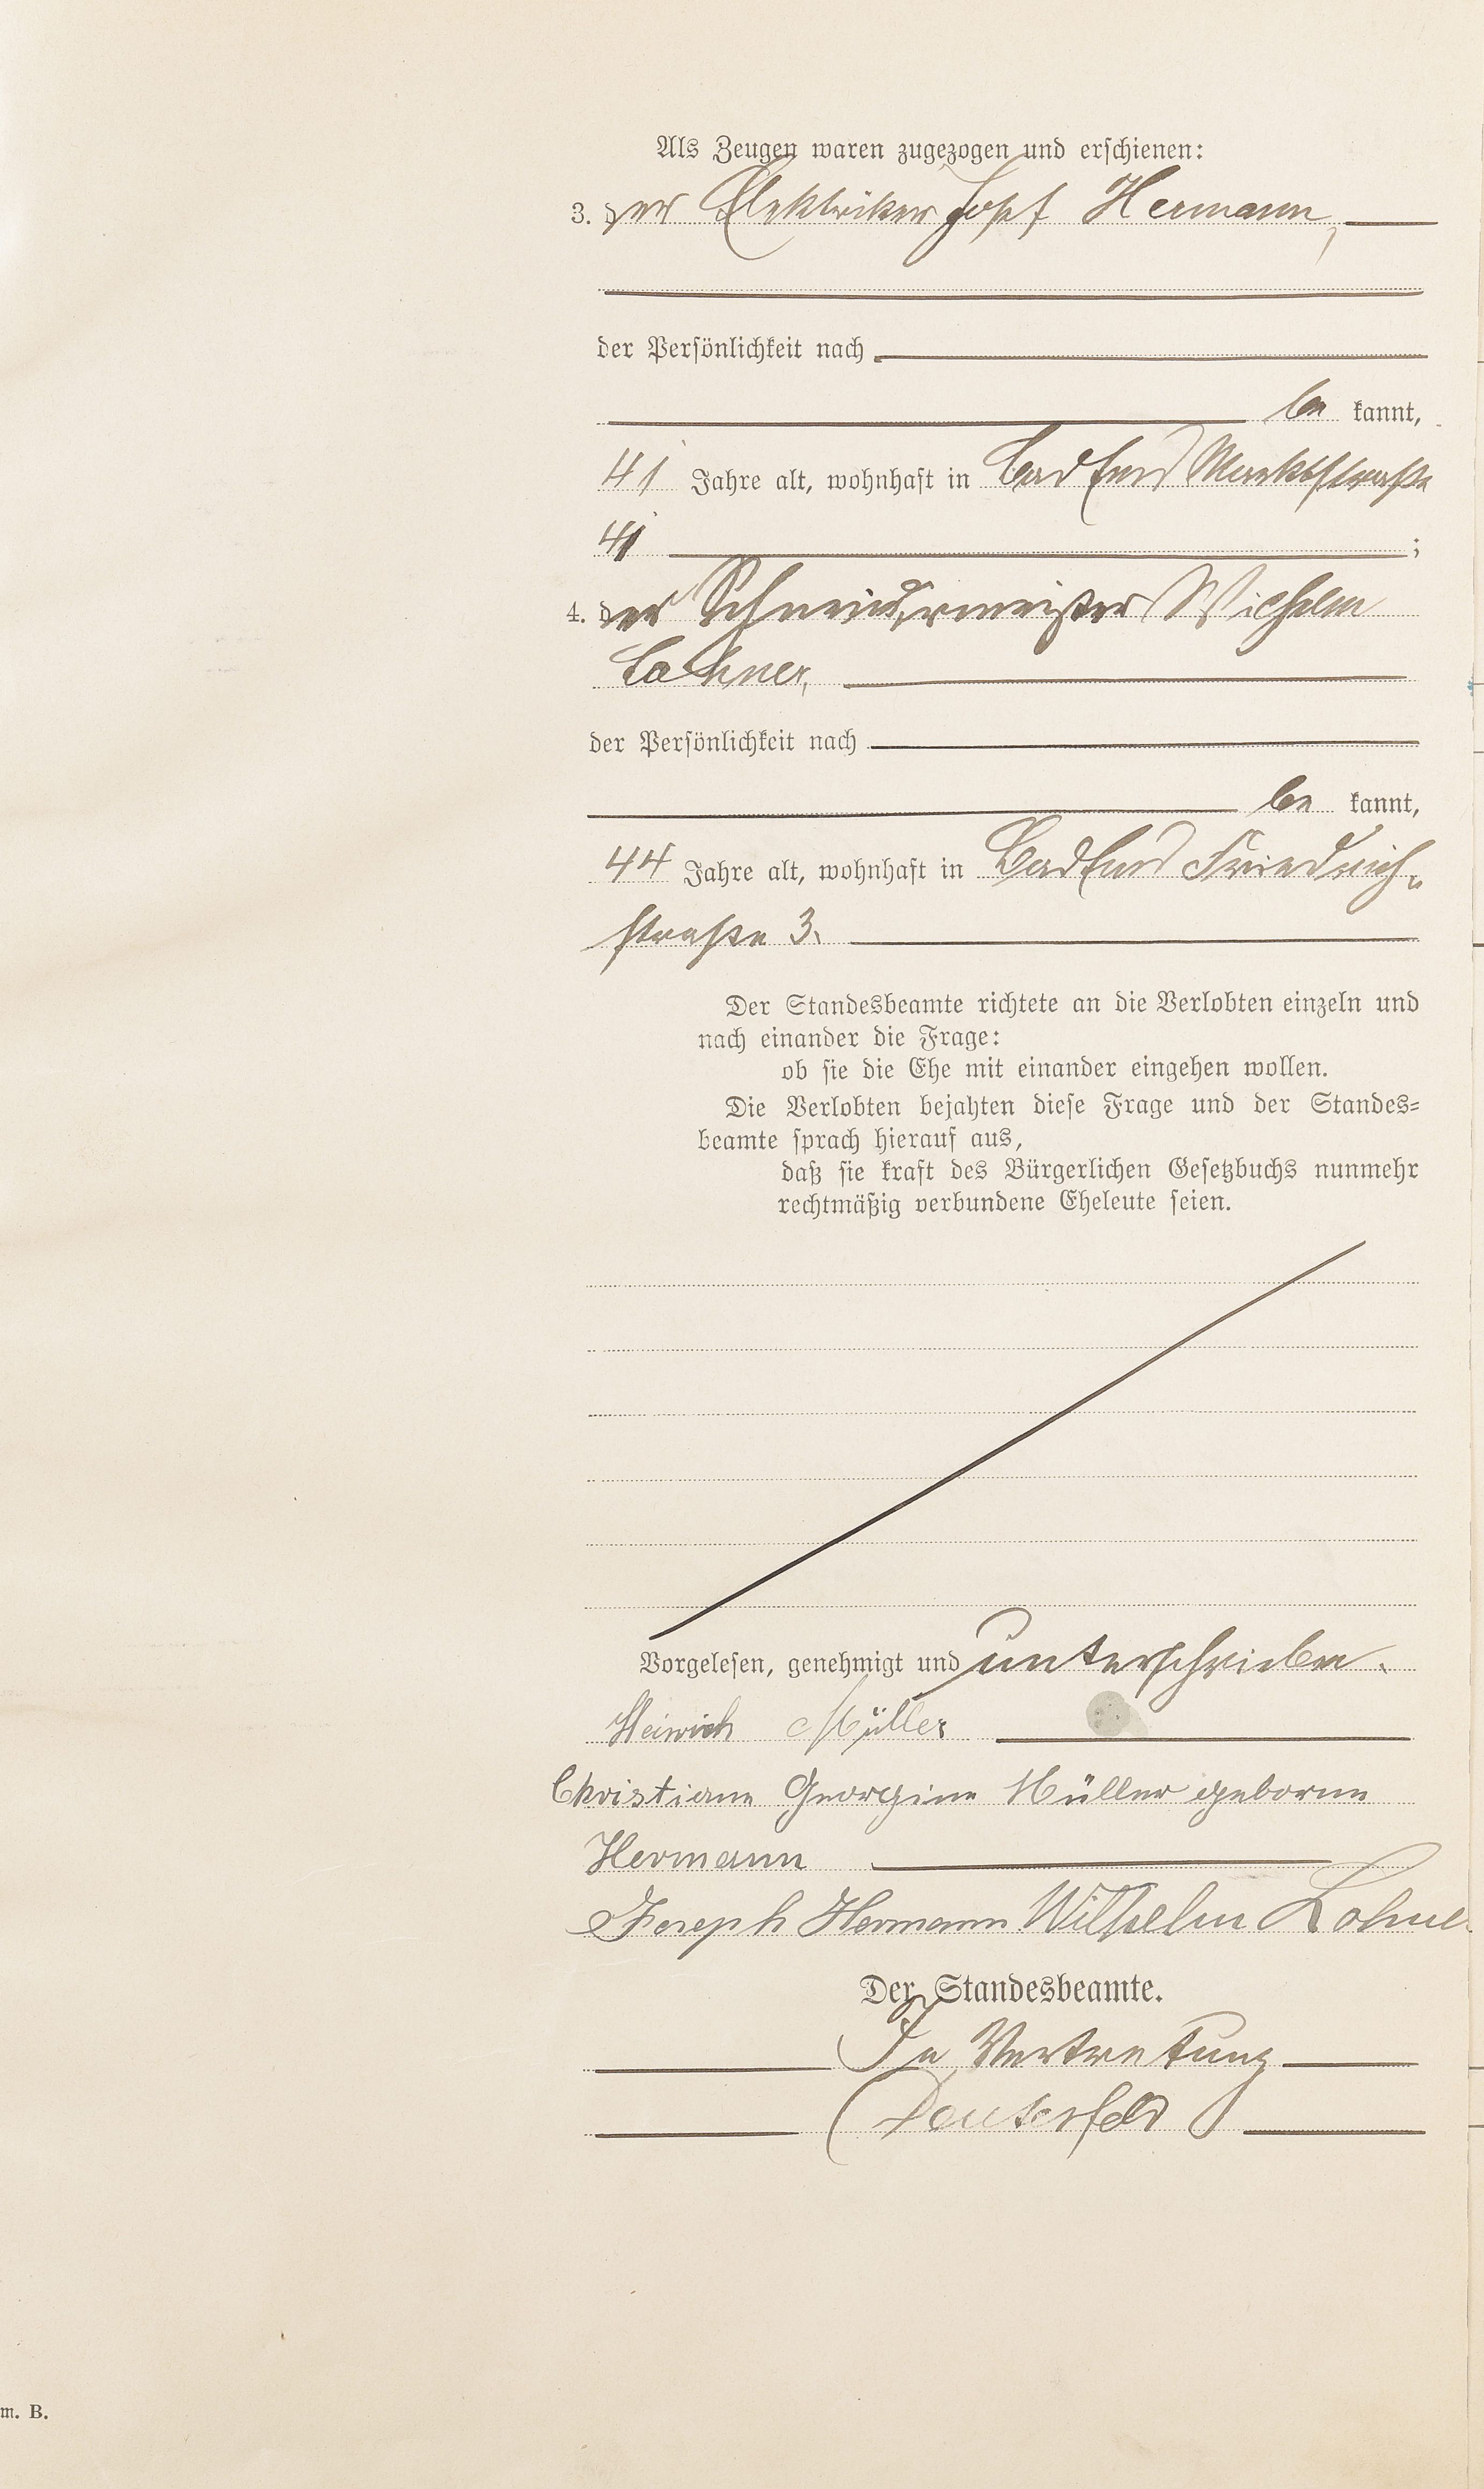 Als Zeugen waren zugezogen und erschienen:
3. der Elektriker Josef Hermann,
der Persönlichkeit nach
be kannt,
41 Jahre alt, wohnhaft in Bad Ems Marktstraße
41 ;
4. der Schneidermeister Wilhelm
Lohner,
der Persönlichkeit nach
be kannt,
44 Jahre alt, wohnhaft in Bad Ems Friedrich-
straße 3.
Der Standesbeamte richtete an die Verlobten einzeln und
nach einander die Frage:
ob sie die Ehe mit einander eingehen wollen.
Die Verlobten bejahten diese Frage und der Standes-
beamte sprach hierauf aus,
daß sie kraft des Bürgerlichen Gesetzbuchs nunmehr
rechtmäßig verbundene Eheleute seien.
Vorgelesen, genehmigt und unterschrieben.
Heinrich Müller
Christiane Georgine Müller geborne
Hermann
Joseph Hermann Wilhelm Lohner
Der Standesbeamte.
In Vertretung
m. B.